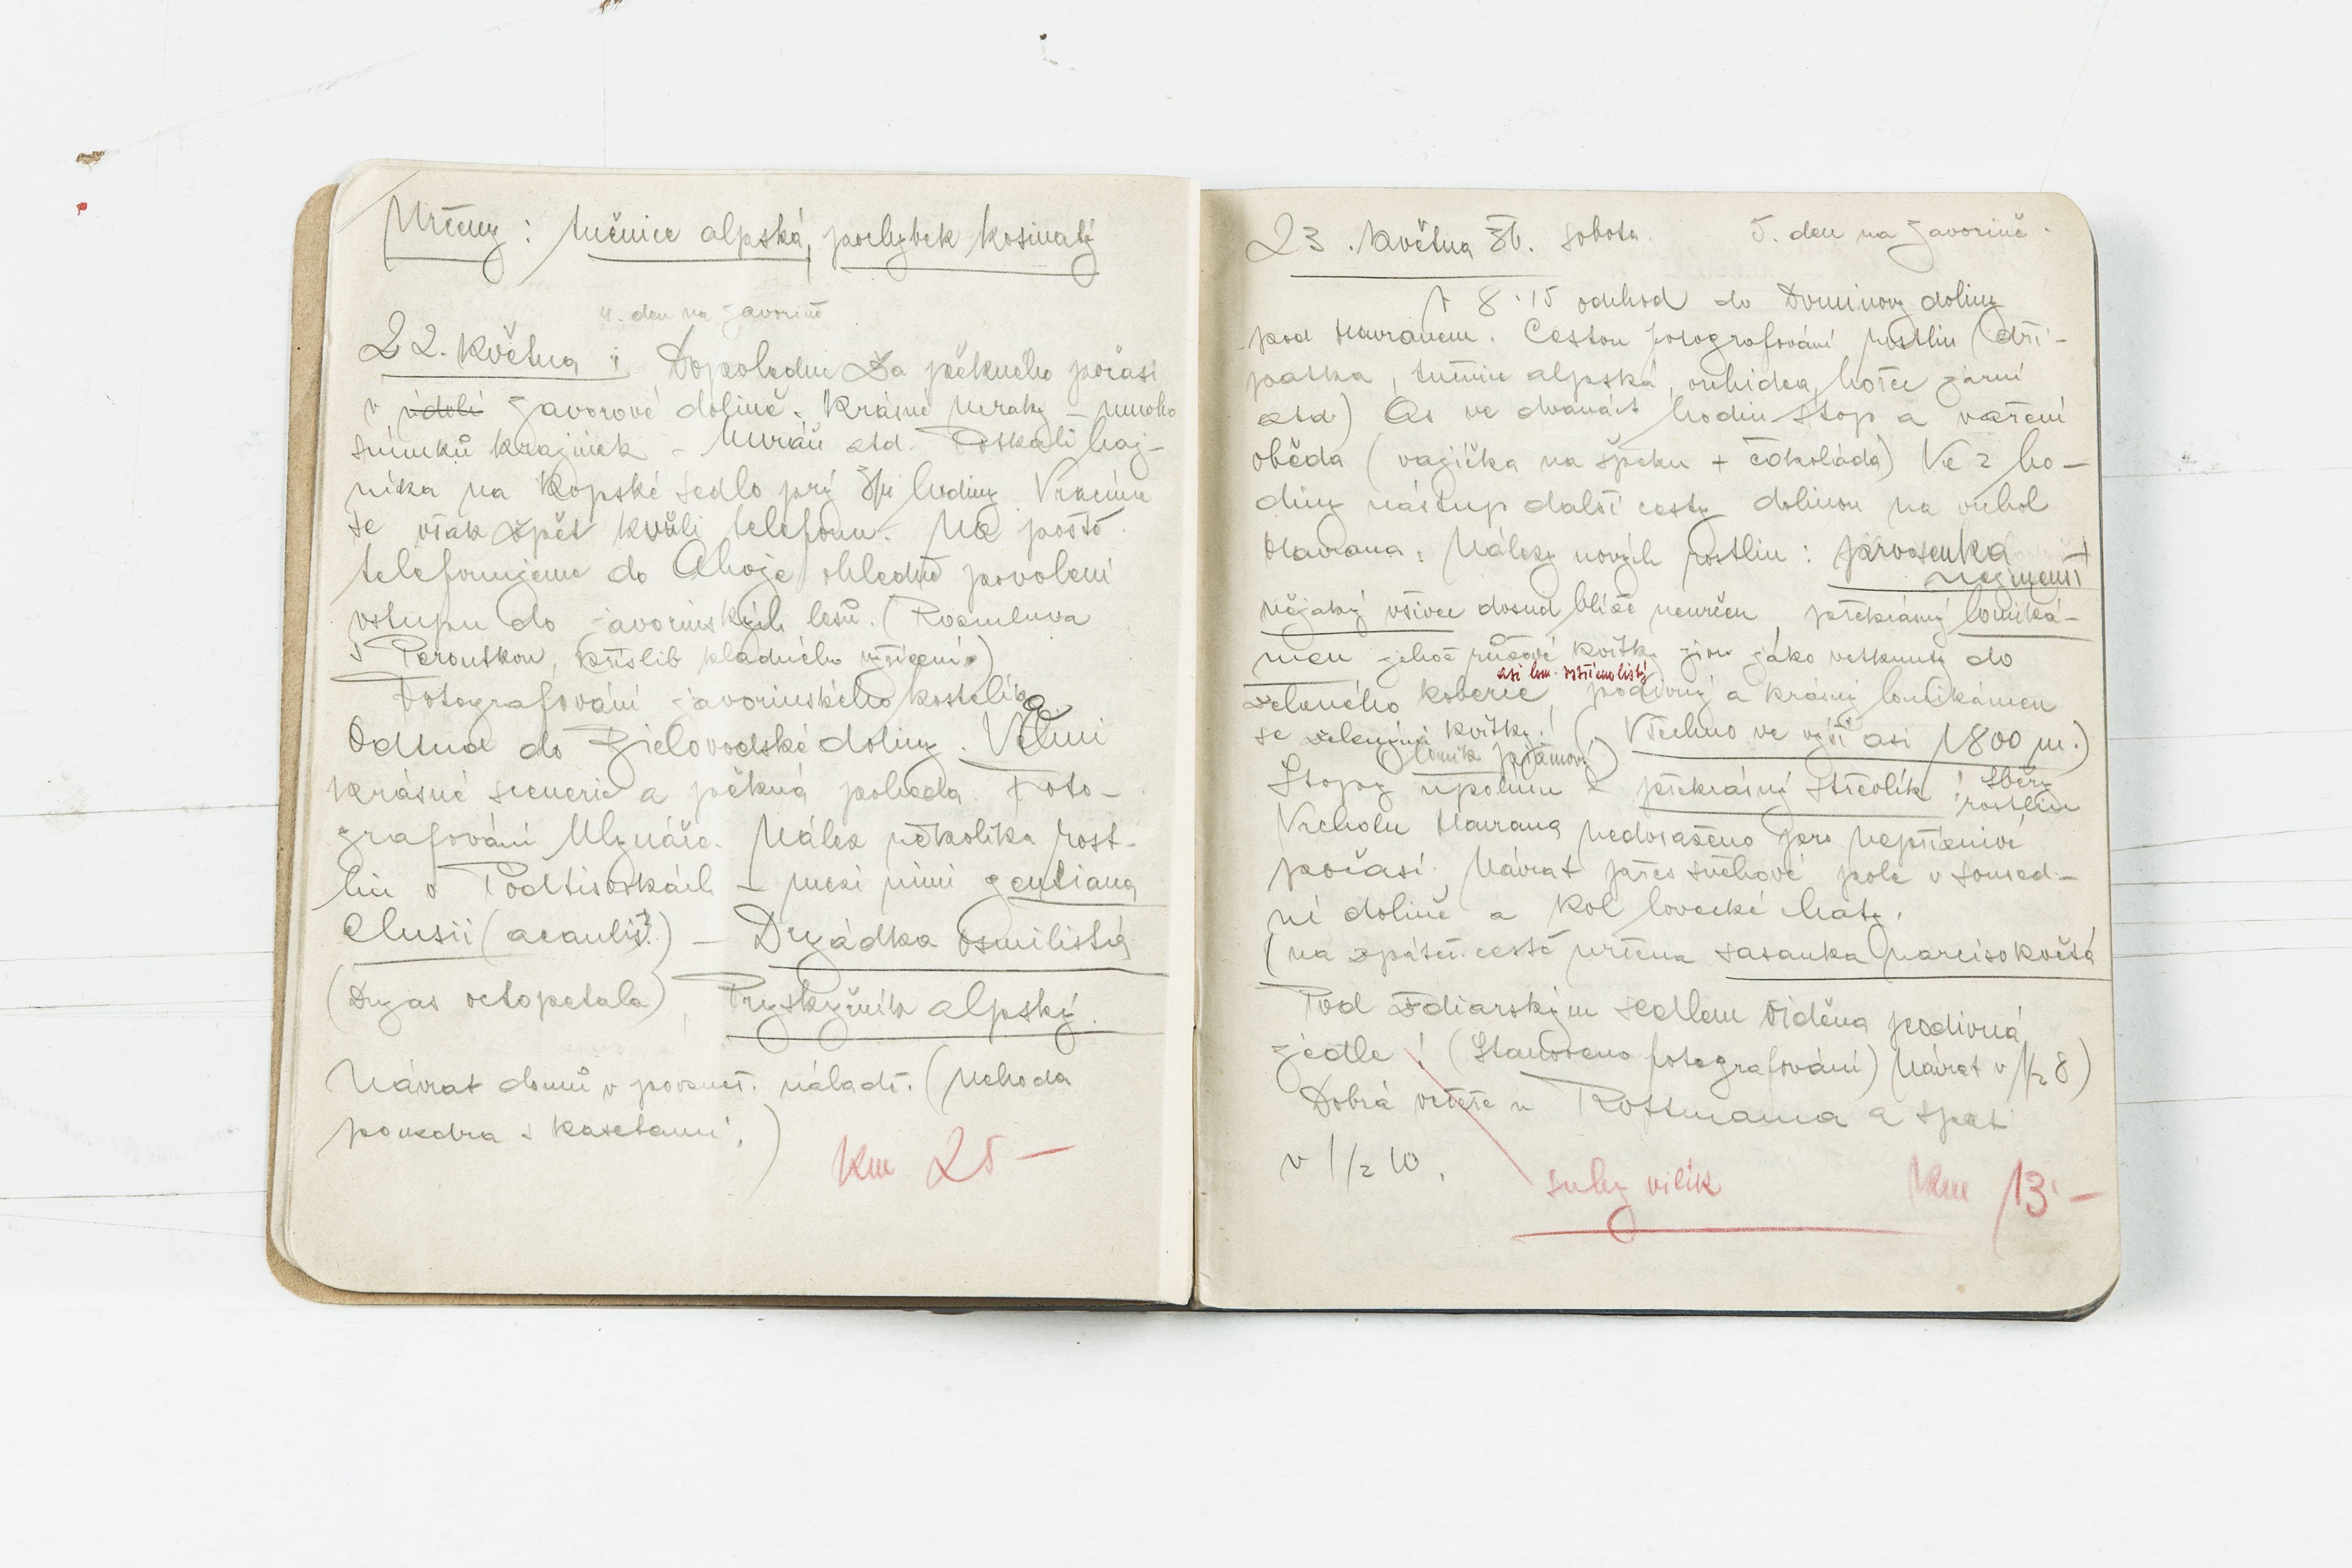 Určeny : tučnice alpská, pochybek kosmatý
4. den na Javorině
22. května : Dopoledne Za pěkného počasí
v údolí Javorové dolině. Krásné mraky – mnoho
snímků krajinek – Muráň atd. Potkali haj-
níka na Kopské sedlo prý hodiny Vracíme
se však zpět kvůli telefonu. Na poště
telefonujeme do Ahoje ohledně povolení
vstupu do javorinských lesů. (Rozmluva
s Peroutkou, příslib kladného vyřízení)
Fotografování javorinského kostelíka
Odtud do Bielovodské doliny. Velmi
krásné scenerie a pěkná pohoda. Foto-
grafování Mlynáře. Nález několika rost-
lin v Podtisovkách – mezi nimi gentiana
Clusii (acaulis?) – Dryádka osmilistá
(Dryas octopetala), Pryskyřník alpský.
Návrat domů v povznes. náladě. (Nehoda
povedra s kasetami.)
km 25 –
23. května sobota. 5. den na Javorině.
V 8.15 odchod do doliny
pod Havranem. Cestou fotografování rostlin (dří-
patka, tučnice alpská, orchidea, hořec jarní
atd) As ve dvanáct hodin stop a vaření
oběda (vajíčka na špeku + čokoláda) Ve 2 ho-
diny nástup další cesty dolinou na vrchol
Havrana. Nálezy nových rostlin : prvosenka +
nejmenší
nějaký všivec dosud blíže neurčen, překrásný lomiká-
men jehož růžové kvítky jsou jako vetknuty do
asi lom. vstřícnolistý
zeleného koberce, podivný a krásný lomikámen
se zelenými kvítky! (Všechno ve výši asi 1800 m.)
Stopy upolínu a překrásný střevlík! Sběry
rostlin
Vrcholu Havrana nedosaženo pro nepříznivé
počasí. Návrat přes sněhové pole v soused-
ní dolině a kol lovecké chaty.
(na zpáteč. cestě určena sasanka narcisokvětá
Pod Ždiarským sedlem viděna podivná
jedle! (Stanoveno fotografování) Návrat v 1/2 8)
Dobrá večeře u Rottmanna a spát
v 1/2 10.
suhy vilík km 13 –